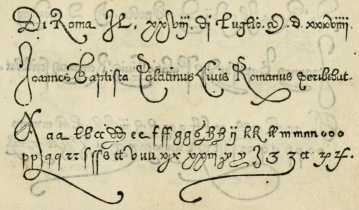 Di Roma Il. xxviij. di Luglio. M. d. xxxviiij.
Ioannes Baptista Palatinus Ciuis Romanus Scribebat.
A aa bb cc dd ee ff gg hh ij kk ll mm nn ooo
pp qq rr sſſs tt vuu xx